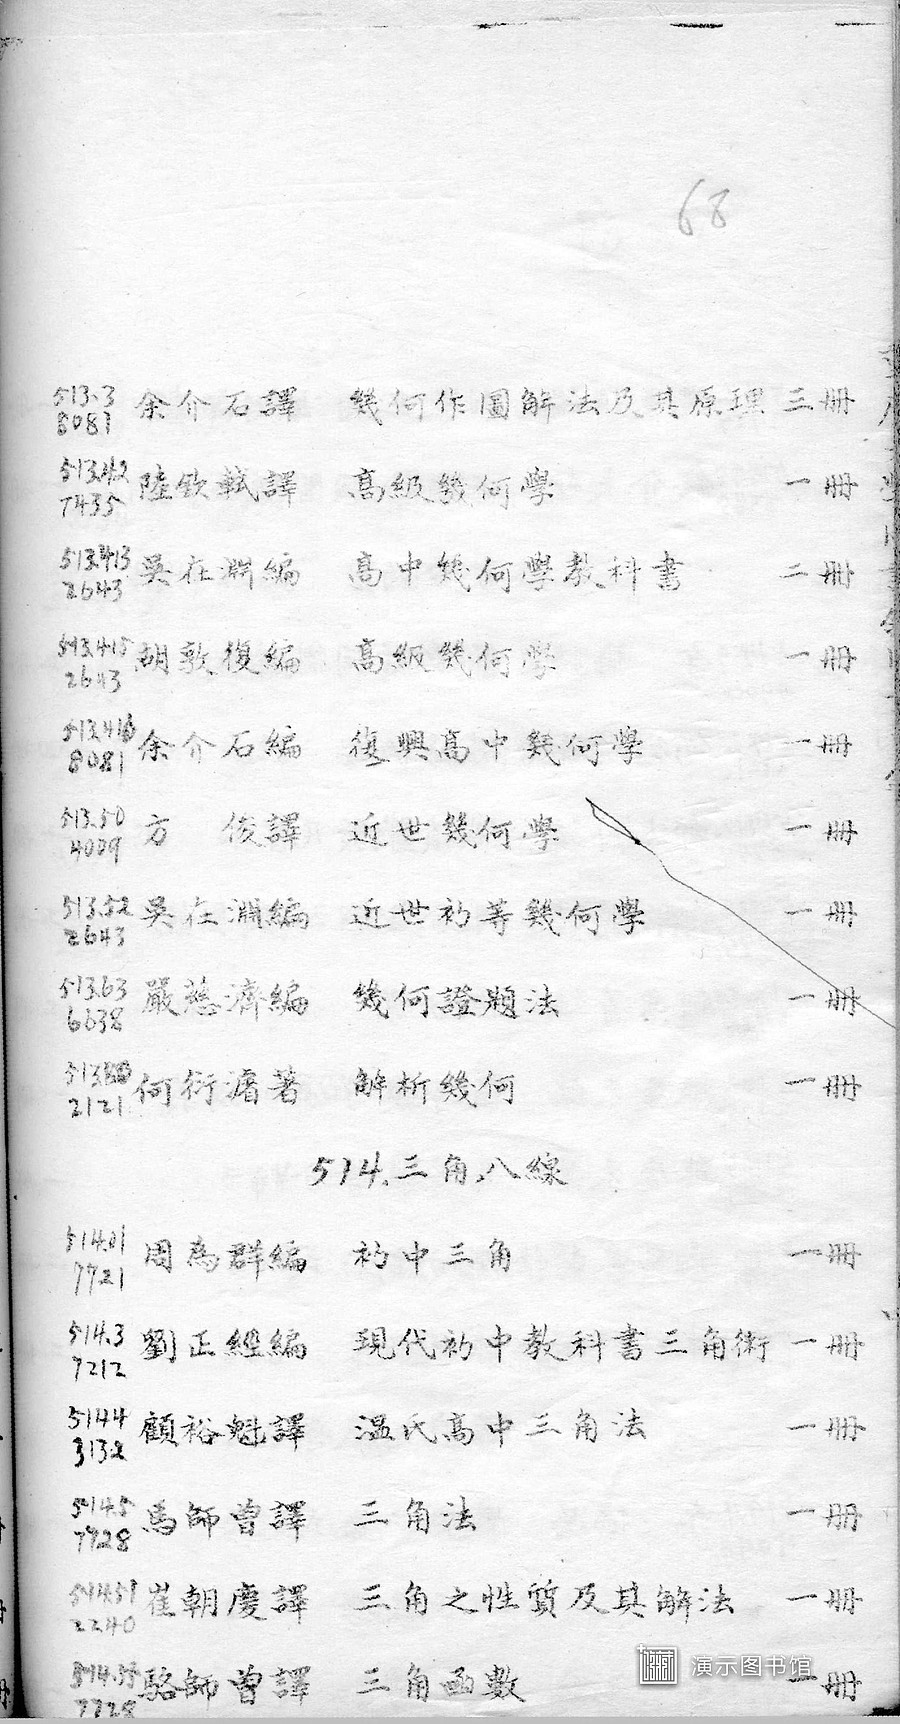 68
513.3 余介石譯 幾何作圖解法及其原理 三冊
8081
513.42 陸欽軾譯 高級幾何學 一冊
7435
513.413 吳在淵編 高中幾何學教科書 二冊
2643
513.415 胡敦復編 高級幾何學 一冊
2643
513.416 余介石編 復興高中幾何學 一冊
8081
513.50 方 俊譯 近世幾何學 一冊
4009
513.52 吳在淵編 近世初等幾何學 一冊
2643
513.63 嚴慈濟編 幾何證題法 一冊
6638
何衍濬著 解析幾何 一冊
2121
514.三角.八線
514.01 周為群編 初中三角 一冊
7721
514.3 劉正經編 現代初中教科書三角術 一冊
7212
514.4 顧裕魁譯 溫氏高中三角法 一冊
3132
514.5 馬師曾譯 三角法 一冊
7728
514.51 崔朝慶譯 三角之性質及其解法 一冊
2240
514.55 駱師曾譯 三角函數 一冊
7728
演示图书馆